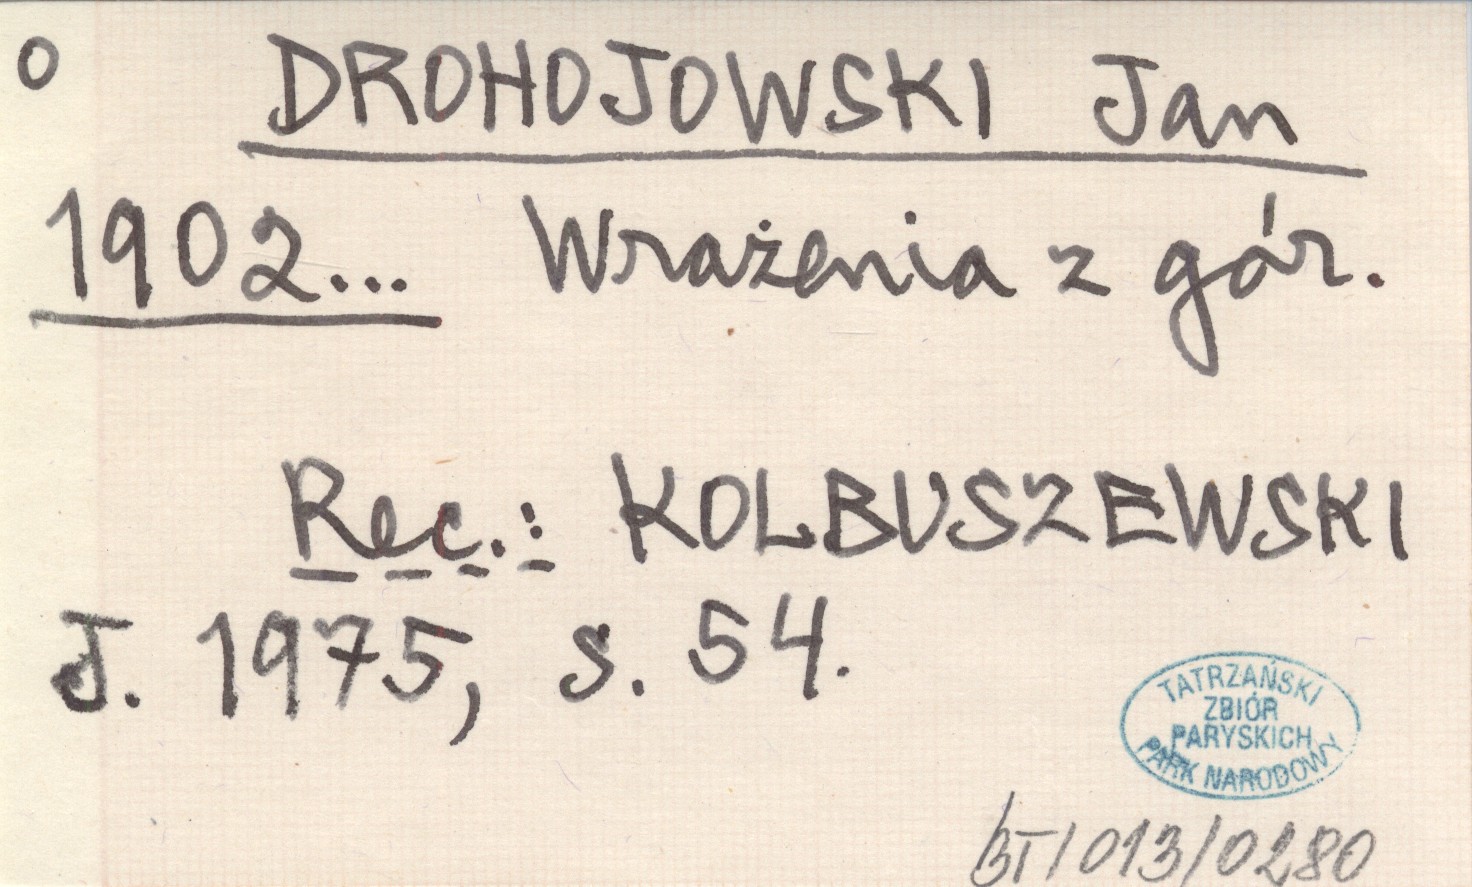 O DROHOJOWSKI Jan
1902... Wrażenia z gór.
Rec.: KOLBUSZEWSKI
J. 1975, s. 54.
TATRZAŃSKI
ZBIÓR
PARYSKICH
PARK NARODOWY
BT/013/0280